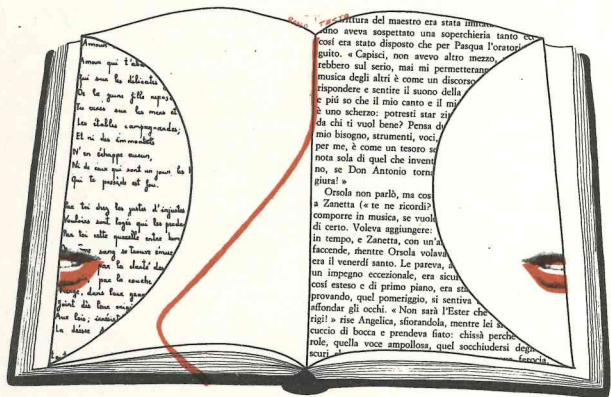 TESTA
Amour
Amour qui
qui sur les délicates
De la jeune fille repose
Tu erres sur les mers et
Les étables campagnardes;
Et ni des immortels
N'en échappe aucun,
Ni de ceux qui sont un jour les
Qui te possède est fou.
Par toi chez les justes d'injustes
Vouloirs sont logés qui les
Par toi cette querelle entre
sang se trouve
par la clarté des
par la couche
dans leur
Joint dès leur
Aux lois;
La déesse
ttura del maestro era stata
uno aveva sospettato una soperchieria tanto
cosí era stato disposto che per Pasqua l'oratori
guito. « Capisci, non avevo altro mezzo,
rebbero sul serio, mai mi permetteran
musica degli altri è come un discorso
rispondere e sentire il suono della
e piú so che il mio canto e il mi
è uno scherzo: potresti star zi
da chi ti vuol bene? Pensa
mio bisogno, strumenti, voci,
per me, è come un tesoro se
nota sola di quel che invent
no, se Don Antonio torna
giura! »
Orsola non parlò, ma cos
a Zanetta (« te ne ricordi?
comporre in musica, se vuole
di certo. Voleva aggiungere:
in tempo, e Zanetta, con un'a
faccende, mentre Orsola volava
era il venerdí santo. Le pareva,
un impegno eccezionale, era sicur
cosí esteso e di primo piano, era sta
provando, quel pomeriggio, si sentiva
affondar gli occhi. « Non sarà l'Ester che
rigi! » rise Angelica, sfiorandola, mentre lei s
cuccio di bocca e prendeva fiato: chissà perché
role, quella voce ampollosa, quel socchiudersi deg
scuri
ferocia;